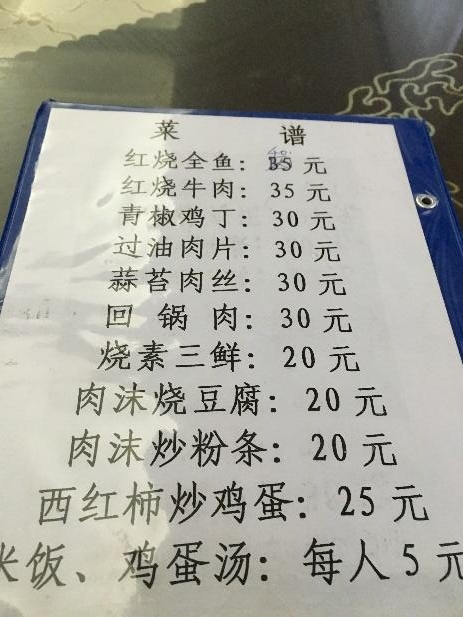 菜 谱
红烧全鱼：35元
红烧牛肉：35元
青椒鸡丁：30元
过油肉片：30元
蒜苔肉丝：30元
回锅肉：30元
烧素三鲜：20元
肉沫烧豆腐：20元
肉沫炒粉条：20元
西红柿炒鸡蛋：25元
米饭、鸡蛋汤：每人5元